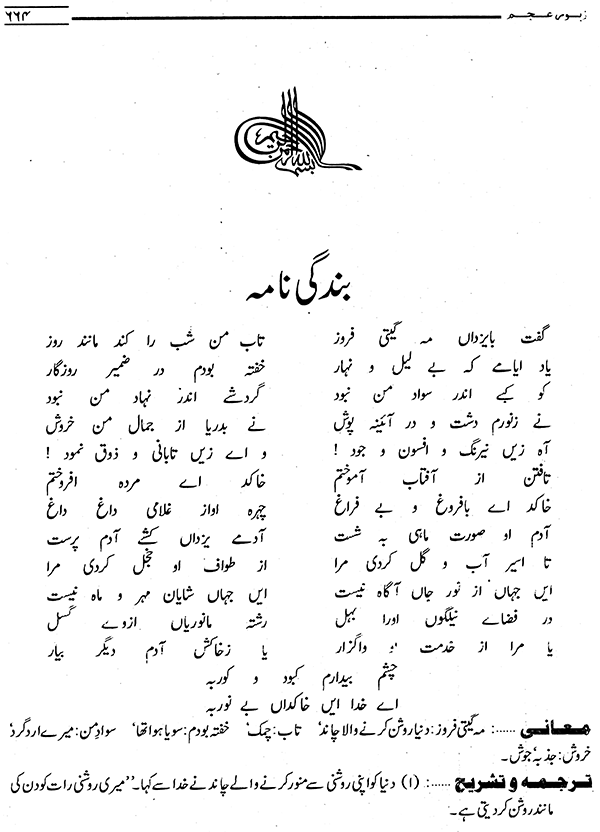 ۶۶۴ زبور عجم
بسم اللہ الرحمن الرحیم
بندگی نامہ
گفت بایزداں مہ گیتی فروز تاب من شب را کند مانند روز
یاد ایامے کہ بے لیل و نہار خفتہ بودم در ضمیر روزگار
کو کبے اندر سواد من نبود گردشے اندر نہاد من نبود
نے زنورم دشت و در آئینہ پوش نے بدریا از جمال من خروش
آہ زیں نیرنگ و افسون و جود ! و اے زیں تابانی و ذوق نمود !
تافتن از آفتاب آموختم خاکد اے مردہ افروختم
خاکد اے بافروغ و بے فراغ چہرہ اواز غلامی داغ داغ
آدم او صورت ماہی بہ شست آدمے یزداں کشے آدم پرست
تا اسیر آب و گل کردی مرا از طواف او خجل کردی مرا
ایں جہاں از نور جاں آگاہ نیست ایں جہاں شایان مہر و ماہ نیست
در فضاے نیلگوں اورا بہل رشتہ مانوریاں ازوے گسل
یا مرا از خدمت واگزار یا زخاکش آدم دیگر بیار
چشم بیدارم کبود و کوربہ
اے خدا ایں خاکداں بے نوربہ
معانی ......: مہ گیتی فروز: دنیا روشن کرنے والا چاند‘ تاب: چمک‘ خفتہ بودم: سویا ہوا تھا‘ سواد من: میرے ارد گرد‘
خروش: جذبہ جوش۔
ترجمہ و تشریح ......: (۱) دنیا کو اپنی روشنی سے منور کرنے والے چاند نے خدا سے کہا۔ ’’میری روشنی رات کو دن کی
مانند روشن کر دیتی ہے۔